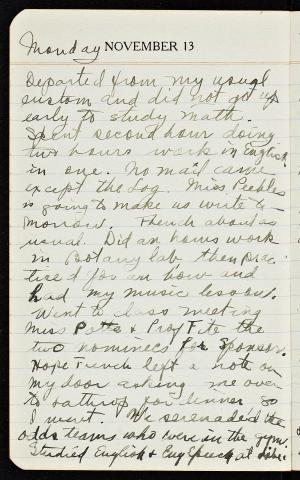 Monday NOVEMBER 13
Departed from my usual
custom and did not get up
early to study math.
Spent second hour doing
two hours work in English
in one. No mail came
except the Log. Miss Peebles
is going to make us write to-
morrow. French about as
usual. Did an hours work
in Botany lab then prac-
ticed for an hour and
had my music lesson.
Went to class meeting
Miss Potts & Prof Fite the
two nominees for sponsor.
Hope French left a note on
my door asking me over
to Lathrop for dinner so
I went. We serenaded the
odds teams who were in the gym.
Studied English & Eng Speech at Libe.